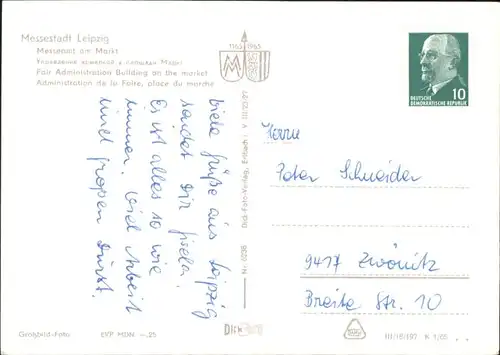 Messestadt Leipzig
Messeamt am Markt
Fair Administration Building on the market
Administration de la Foire, place du marché
1165 1965
MM
DEUTSCHE
DEMOKRATISCHE REPUBLIK
10
Viele Grüße aus Leipzig
sendet Dir Gisela.
Es ist alles so wie
immer. Viel Arbeit
und großen Durst.
Dick-Foto-Verlag, Erlbach i. V.
Nr. 0236
Herrn
Peter Schneider
9417 Zwönitz
Breite Str. 10
Großbild-Foto
EVP MDN -.25
Dick
III/18/197 K 1/65